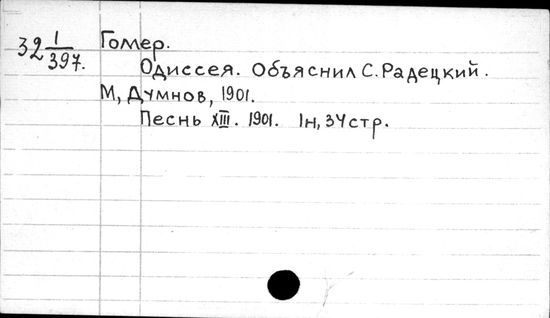 32 1/397.
Гомер.
Одиссея. Объяснил С. Радецкий.
М, Думнов, 1901.
Песнь XIII. 1901. 1н, 34 стр.